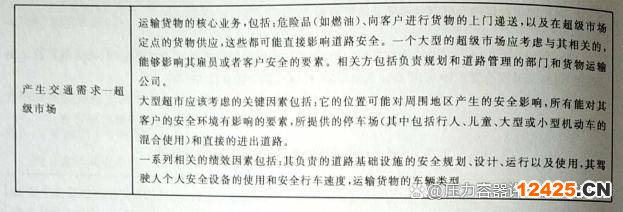 运输货物的核心业务,包括:危险品(如燃油)、向客户进行货物的上门递送,以及在超级市场
定点的货物供应,这些都可能直接影响道路安全。一个大型的超级市场应考虑与其相关的,
能够影响其雇员或者客户安全的要素。相关方包括负责规划和道路管理的部门和货物运输
公司。
产生交通需求—超
级市场
大型超市应该考虑的关键因素包括:它的位置可能对周围地区产生的安全影响,所有能对其
客户的安全环境有影响的要素,所提供的停车场(其中包括行人、儿童、大型或小型机动车的
混合使用)和直接的进出道路。
一系列相关的绩效因素包括:其负责的道路基础设施的安全规划、设计、运行以及使用,其驾
驶人个人安全设备的使用和安全行车速度,运输货物的车辆类型
压力容器
12425.CN